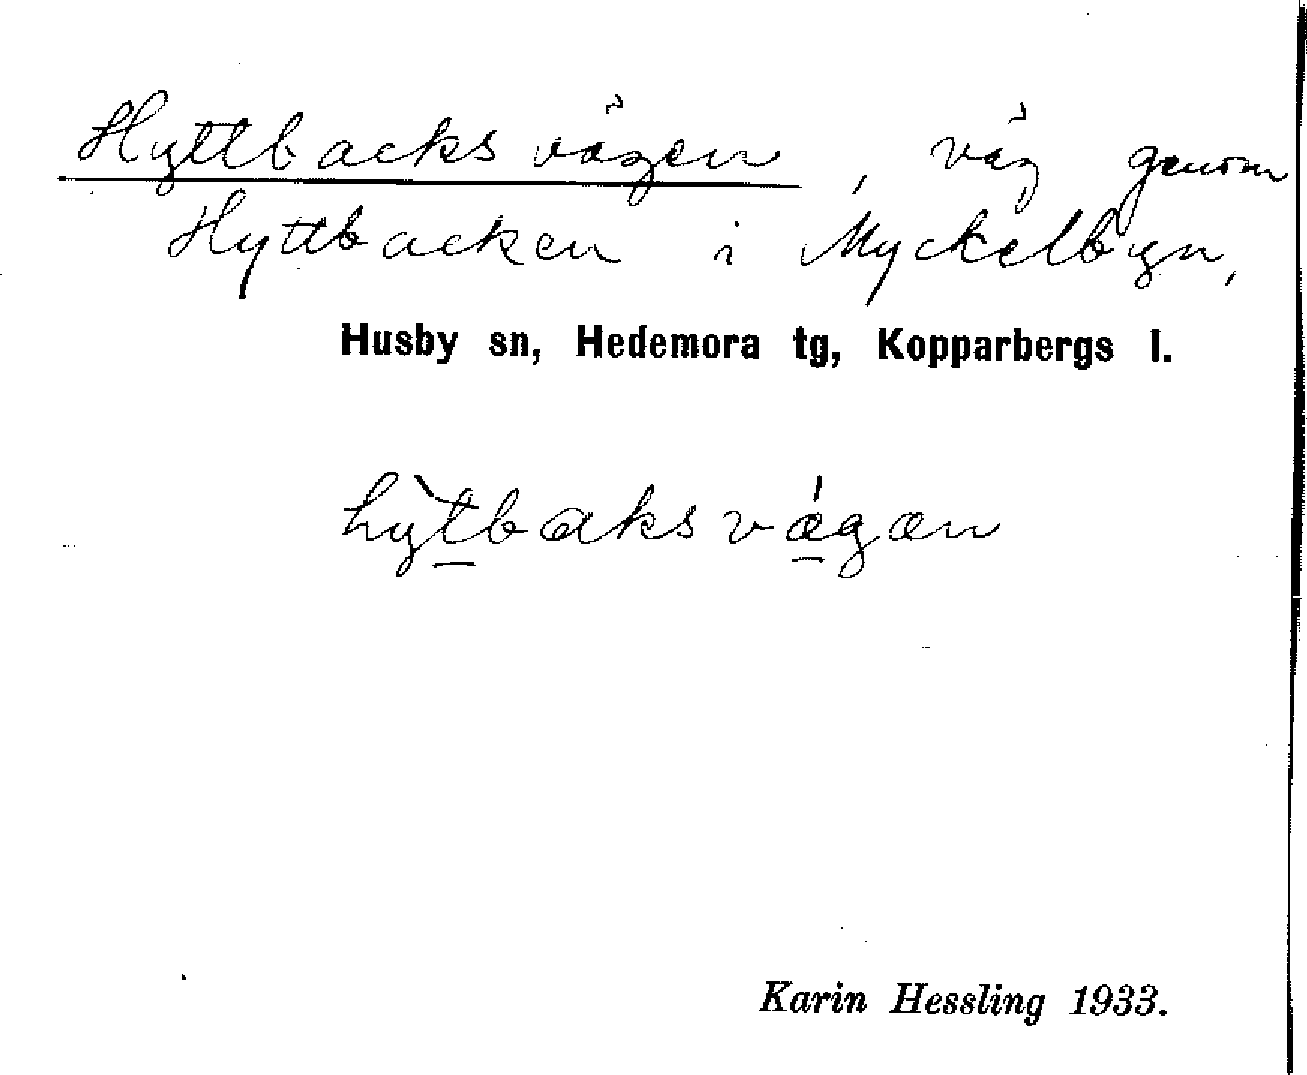 Hyttbacksvägen, väg genom
Hyttbacken i Myckelbyn,
Husby sn, Hedemora tg, Kopparbergs l.
hỳtbaksvǽgæn
Karin Hessling 1933.